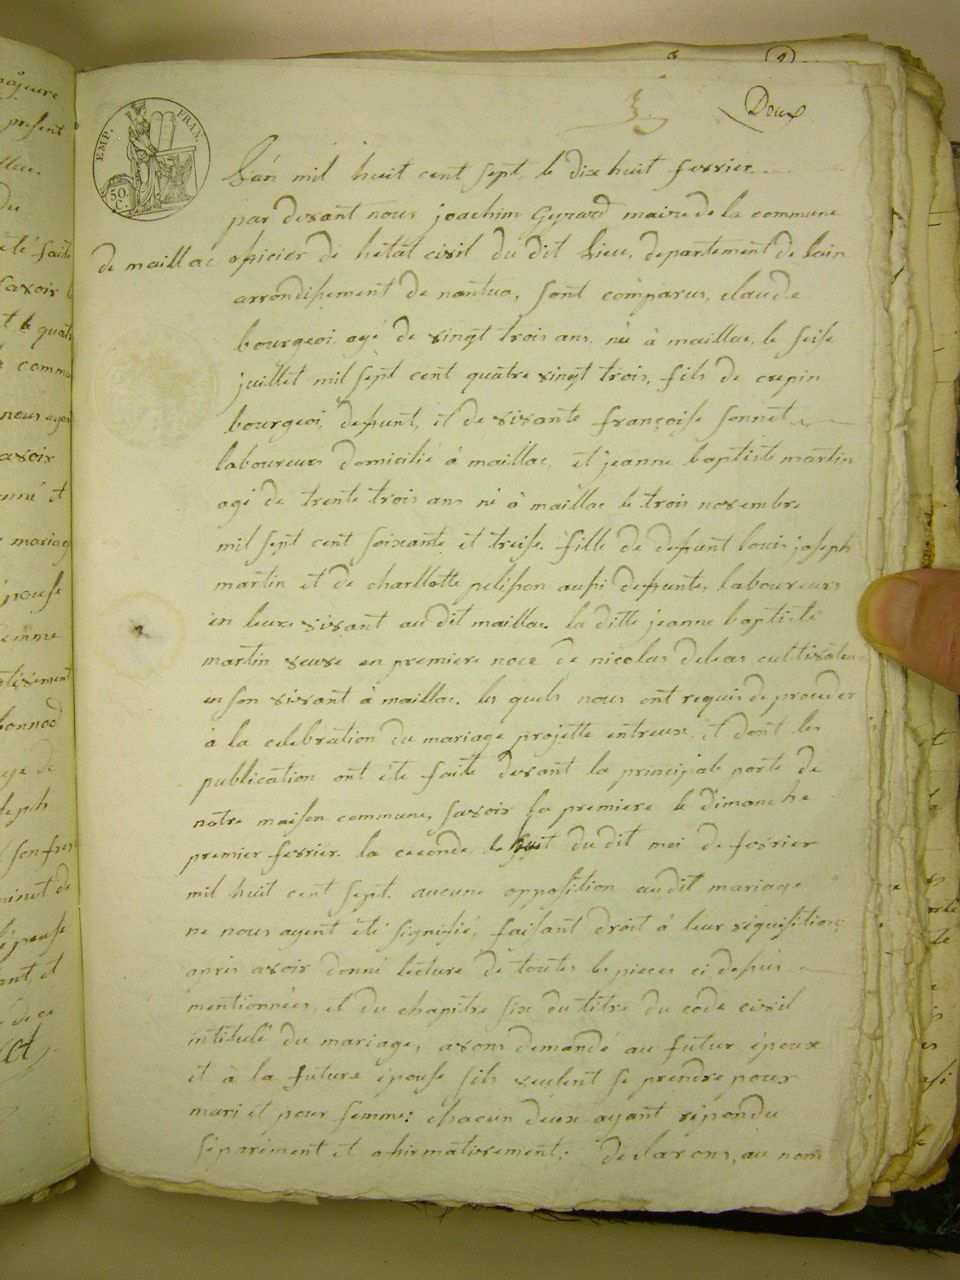 2
Deux
EMP. FRAN.
50. C.
L'an mil huit cent sept, le dix huit fevrier
par devant nous joachim Gyrard maire de la commune
de maillac oficier de l'état civil du dit Lieu, departement de lain
arrondissement de nantua, sont comparus, claude
bourgeoi agé de vingt trois ans né à maillac, le seise
juillet mil sept cent quatre vingt trois, fils de crepin
bourgeoi, defunt, et de vivante françoise sonnet
laboureurs domicilié à maillac, et jeanne baptiste martin
agé de trente trois ans né à maillac le trois novembre
mil sept cent soixante et treise fille de defunt loui joseph
martin et de charllotte pelisson aussi defunte, laboureurs
en leurs vivant au dit maillac. la ditte jeanne baptiste
martin veuve en premiere noce de nicolas deleas cultivateur
en son vivant à maillac. les quels nous ont requis de proceder
à la celebration du mariage projetté entreux, et dont les
publication ont été faite devant la principale porte de
notre maison commune, savoir la premiere le dimanche
premier fevrier la ceconde le huit du dit moi de fevrier
mil huit cent sept. aucune opposition au dit mariage
ne nous ayent été signifié, faisant droit à leur requisition,
apris avoir donné lecture de toutes les pieces ci depus
mentionnées, et du chapitre six du titre du code civil
intitulé du mariage, avons demandé au futur époux
et à la future épouse sils veulent se prendre pour
mari et pour femme: chacun deux ayant repondu
séparement et afirmativement, declarons, au nom